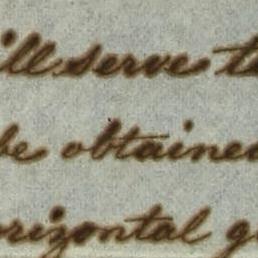 ill serve t
be obtained
orizontal g